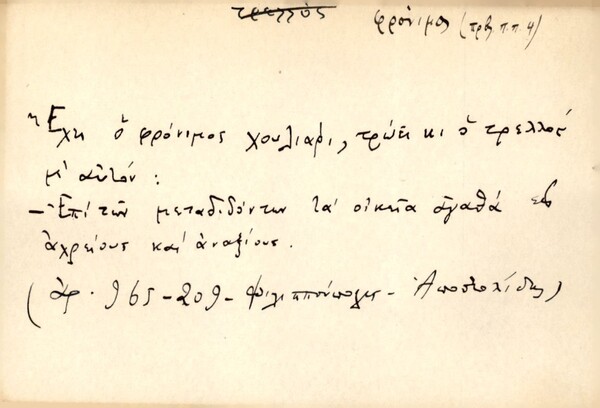 τρελλός φρόνιμος (τρβ. π.π. 4)
"Έχη ὁ φρόνιμος χουλιάρι, τρώει κι ὁ τρελλός
μ' αὐτόν :
– Ἐπί τῶν μεταδιδόντων τά οἰκεῖα ἀγαθά εἰς
ἀχρείους καί ἀναξίους.
(ἀρ. 965-209- Φιλιππούπολις - Ἀποστολίδης)